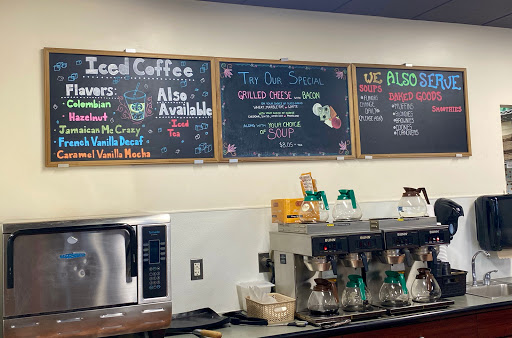 Iced Coffee
Flavors:
Colombian
Hazelnut
Jamaican Me Crazy
French Vanilla Decaf
Caramel Vanilla Mocha
Also
Available
Iced
Tea
Try Our Special
GRILLED CHEESE with BACON
ALONG WITH YOUR CHOICE
of SOUP
$8.05
WE ALSO SERVE
SOUPS
BAKED GOODS
MUFFINS
BROWNIES
COOKIES
SMOOTHIES
BUNN
BUNN